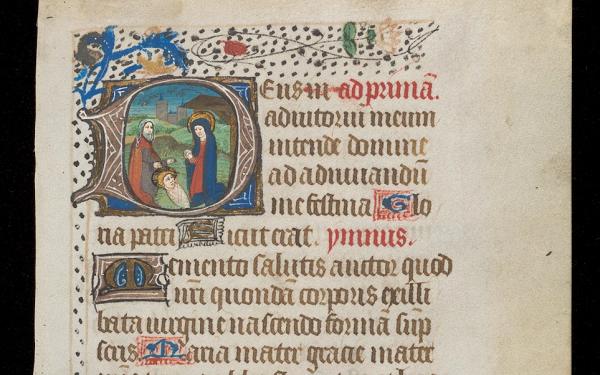 Deus in ad primā.
adiutoriū meum
intende domine
ad adiuuandū
me festina Glo
ria patri Sicut erat. ymnus.
Memento salutis auctor quod
nri quondā corporis ex illi
bata uirgine nascendo formā sūp
seris Maria mater gracie mater